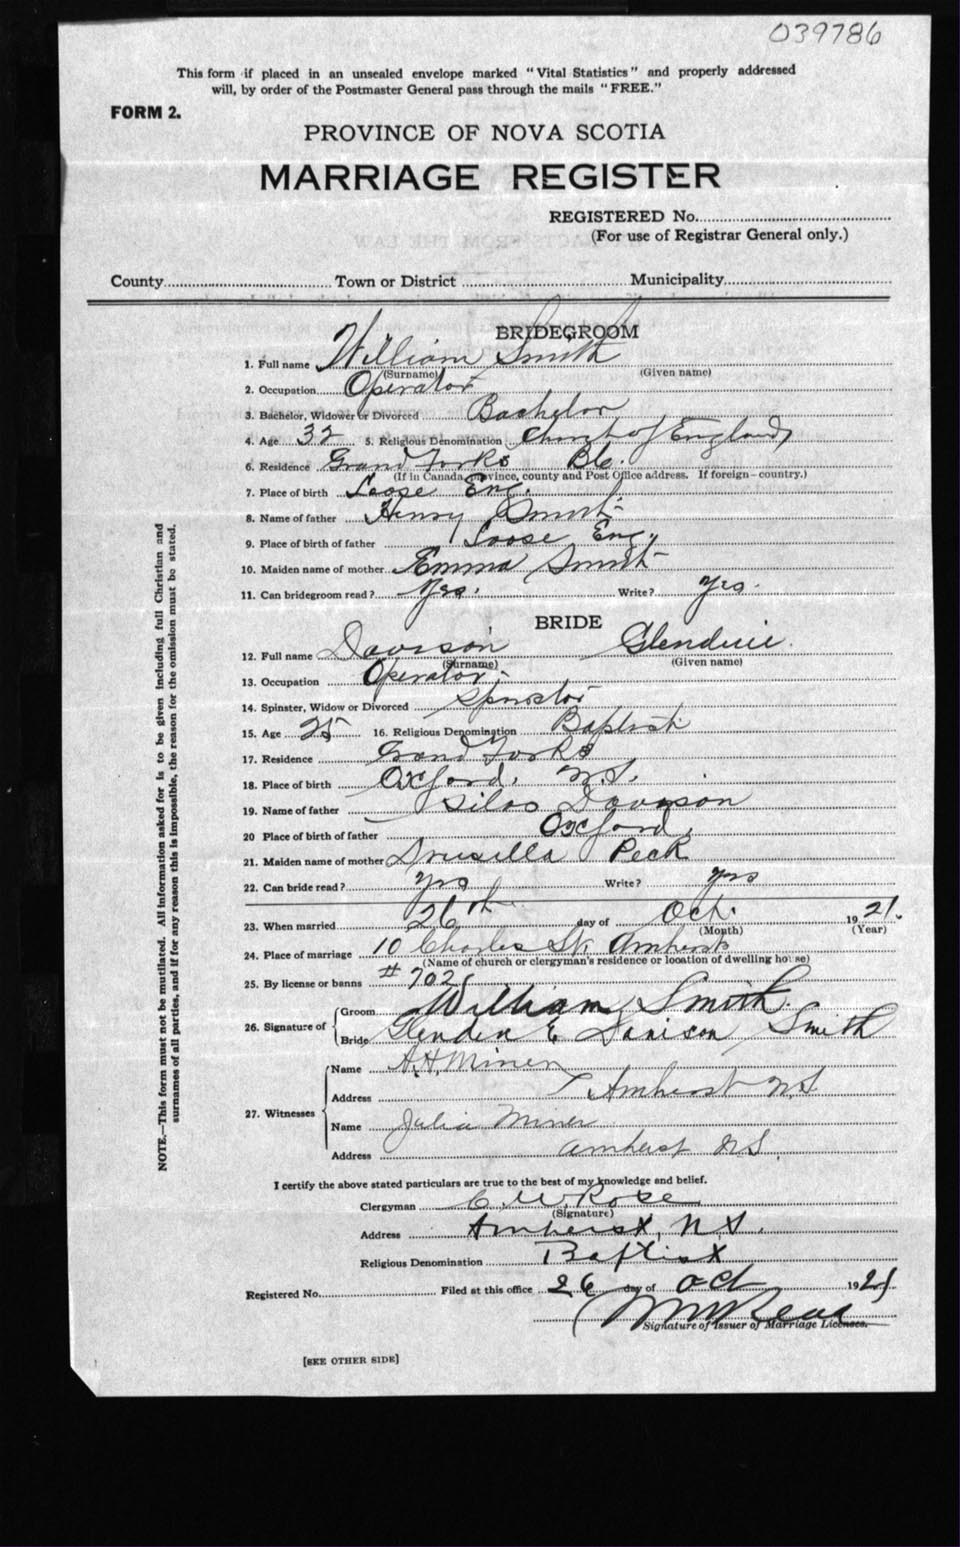 039786
This form if placed in an unsealed envelope marked "Vital Statistics" and properly addressed
will, by order of the Postmaster General pass through the mails "FREE."
FORM 2.
PROVINCE OF NOVA SCOTIA
MARRIAGE REGISTER
REGISTERED No.
(For use of Registrar General only.)
County Town or District Municipality
BRIDEGROOM
1. Full name William Smith
(Surname) (Given name)
2. Occupation Operator
3. Bachelor, Widower or Divorced Bachelor
4. Age 32 5. Religious Denomination Church of England
6. Residence Grand Forks B.C.
(If in Canada, Province, county and Post Office address. If foreign—country.)
7. Place of birth Loose Eng.
8. Name of father Henry Smith
9. Place of birth of father Loose Eng.
10. Maiden name of mother Emma Smith
11. Can bridegroom read? Yes. Write? Yes.
BRIDE
12. Full name Davison
(Surname) (Given name)
13. Occupation Operator
14. Spinster, Widow or Divorced Spinster
15. Age 25 16. Religious Denomination Baptist
17. Residence Grand Forks
18. Place of birth Oxford, N.S.
19. Name of father Silas Davison
20 Place of birth of father Oxford
21. Maiden name of mother Drusilla Peck
22. Can bride read? Yes Write? Yes
23. When married 26th day of Oct. 1921.
(Month) (Year)
24. Place of marriage 10 Charles St. Amherst
(Name of church or clergyman's residence or location of dwelling house)
25. By license or banns #702
26. Signature of Groom William Smith.
Bride Glenden E Davison Smith
27. Witnesses Name A. H. Miner
Address Amherst N.S.
Name Julia Miner
Address Amherst N.S.
I certify the above stated particulars are true to the best of my knowledge and belief.
Clergyman C. W. Rose
(Signature)
Address Amherst, N.S.
Religious Denomination Baptist
Registered No. Filed at this office 26 day of Oct 1921
Signature of Issuer of Marriage Licenses.
[SEE OTHER SIDE]
NOTE.—This form must not be mutilated. All information asked for is to be given including full Christian and
surnames of all parties, and if for any reason this is impossible, the reason for the omission must be stated.